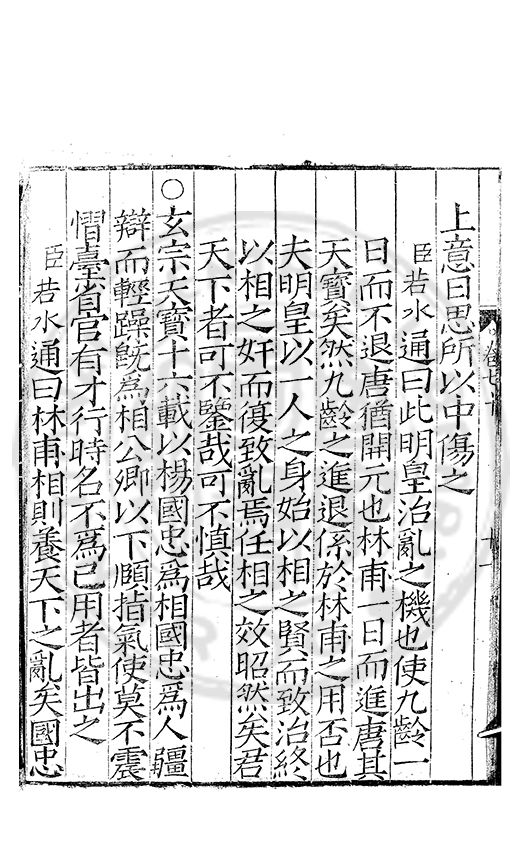 上意日思所以中傷之
臣若水通曰此明皇治亂之機也使九齡一
日而不退唐猶開元也林甫一日而進唐其
天寶矣然九齡之進退係於林甫之用否也
夫明皇以一人之身始以相之賢而致治終
以相之奸而復致亂焉任相之效昭然矣君
天下者可不鑒哉可不慎哉
○玄宗天寶十六載以楊國忠為相國忠為人疆
辯而輕躁既為相公卿以下頤指氣使莫不震
慴臺省官有才行時名不為己用者皆出之
臣若水通曰林甫相則養天下之亂矣國忠